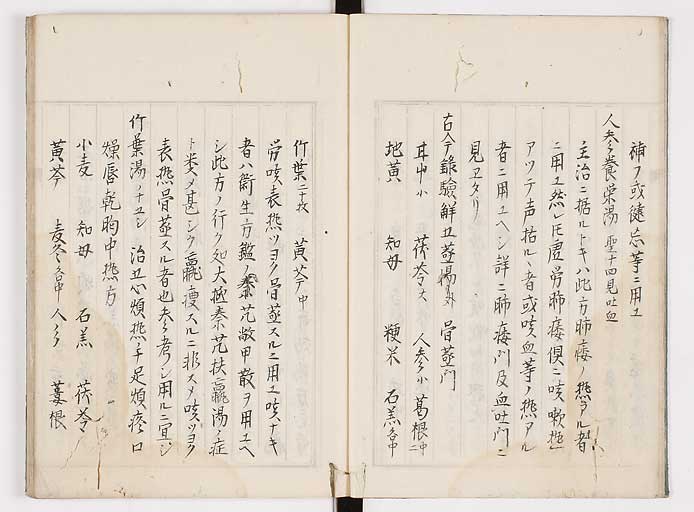 補フ或健忘等ニ用ユ
人参養栄湯 聖十四見吐血
主治ニ据ルトキハ此方肺痿ノ熱アル者
ニ用ユ然レ𪜈虚労肺痿倶ニ咳嗽熱
アツテ声枯ル者或咳血等ノ熱アル
者ニ用ユヘシ詳ニ肺痿門及血吐門ニ
見ヱタリ
古今録験解五蒸湯 外 骨蒸門
甘中小 茯苓大 人参小 葛根中二
地黄 知母 粳米 石羔各中
竹葉二十枚 黄芩中
労咳表熱ツヨク骨蒸スルニ用ユ咳ナキ
者ハ衛生方鑑ノ秦艽鼈甲散ヲ用ユヘ
シ此方ノ行ク処大抵秦艽扶羸湯ノ症
ト米メ甚シク羸痩スルニ非スメ咳ツヨク
表熱骨蒸スル者也参考シ用ルニ宜シ
竹葉湯ノナユシ 治五心煩熱手足煩疼口
燥唇乾胸中熱方
小麦 知母 石羔 茯苓
黄芩 麦冬各中 人参 蔞根